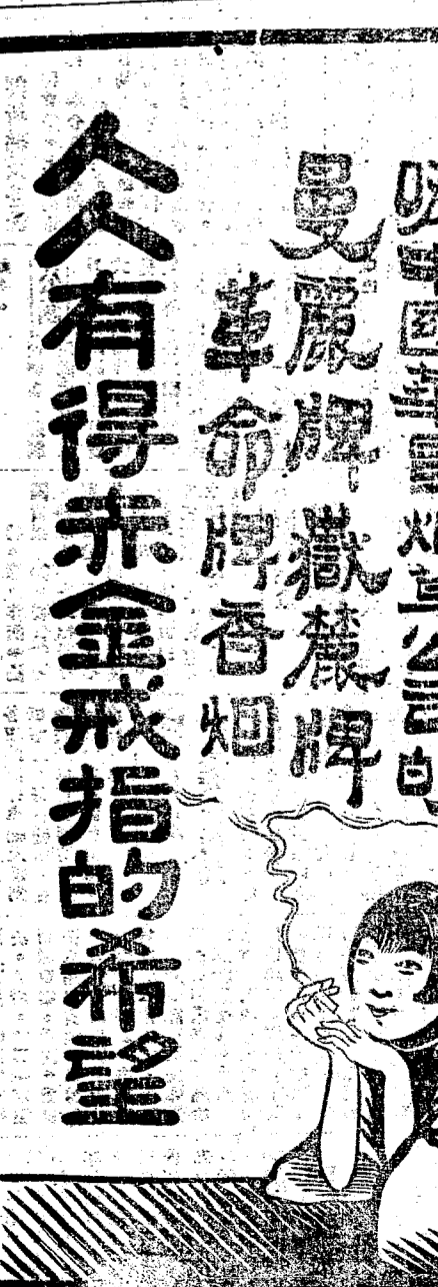 吸中国華烟草公司的
曼麗牌嶽麓牌
革命牌香烟
人人有得赤金戒指的希望